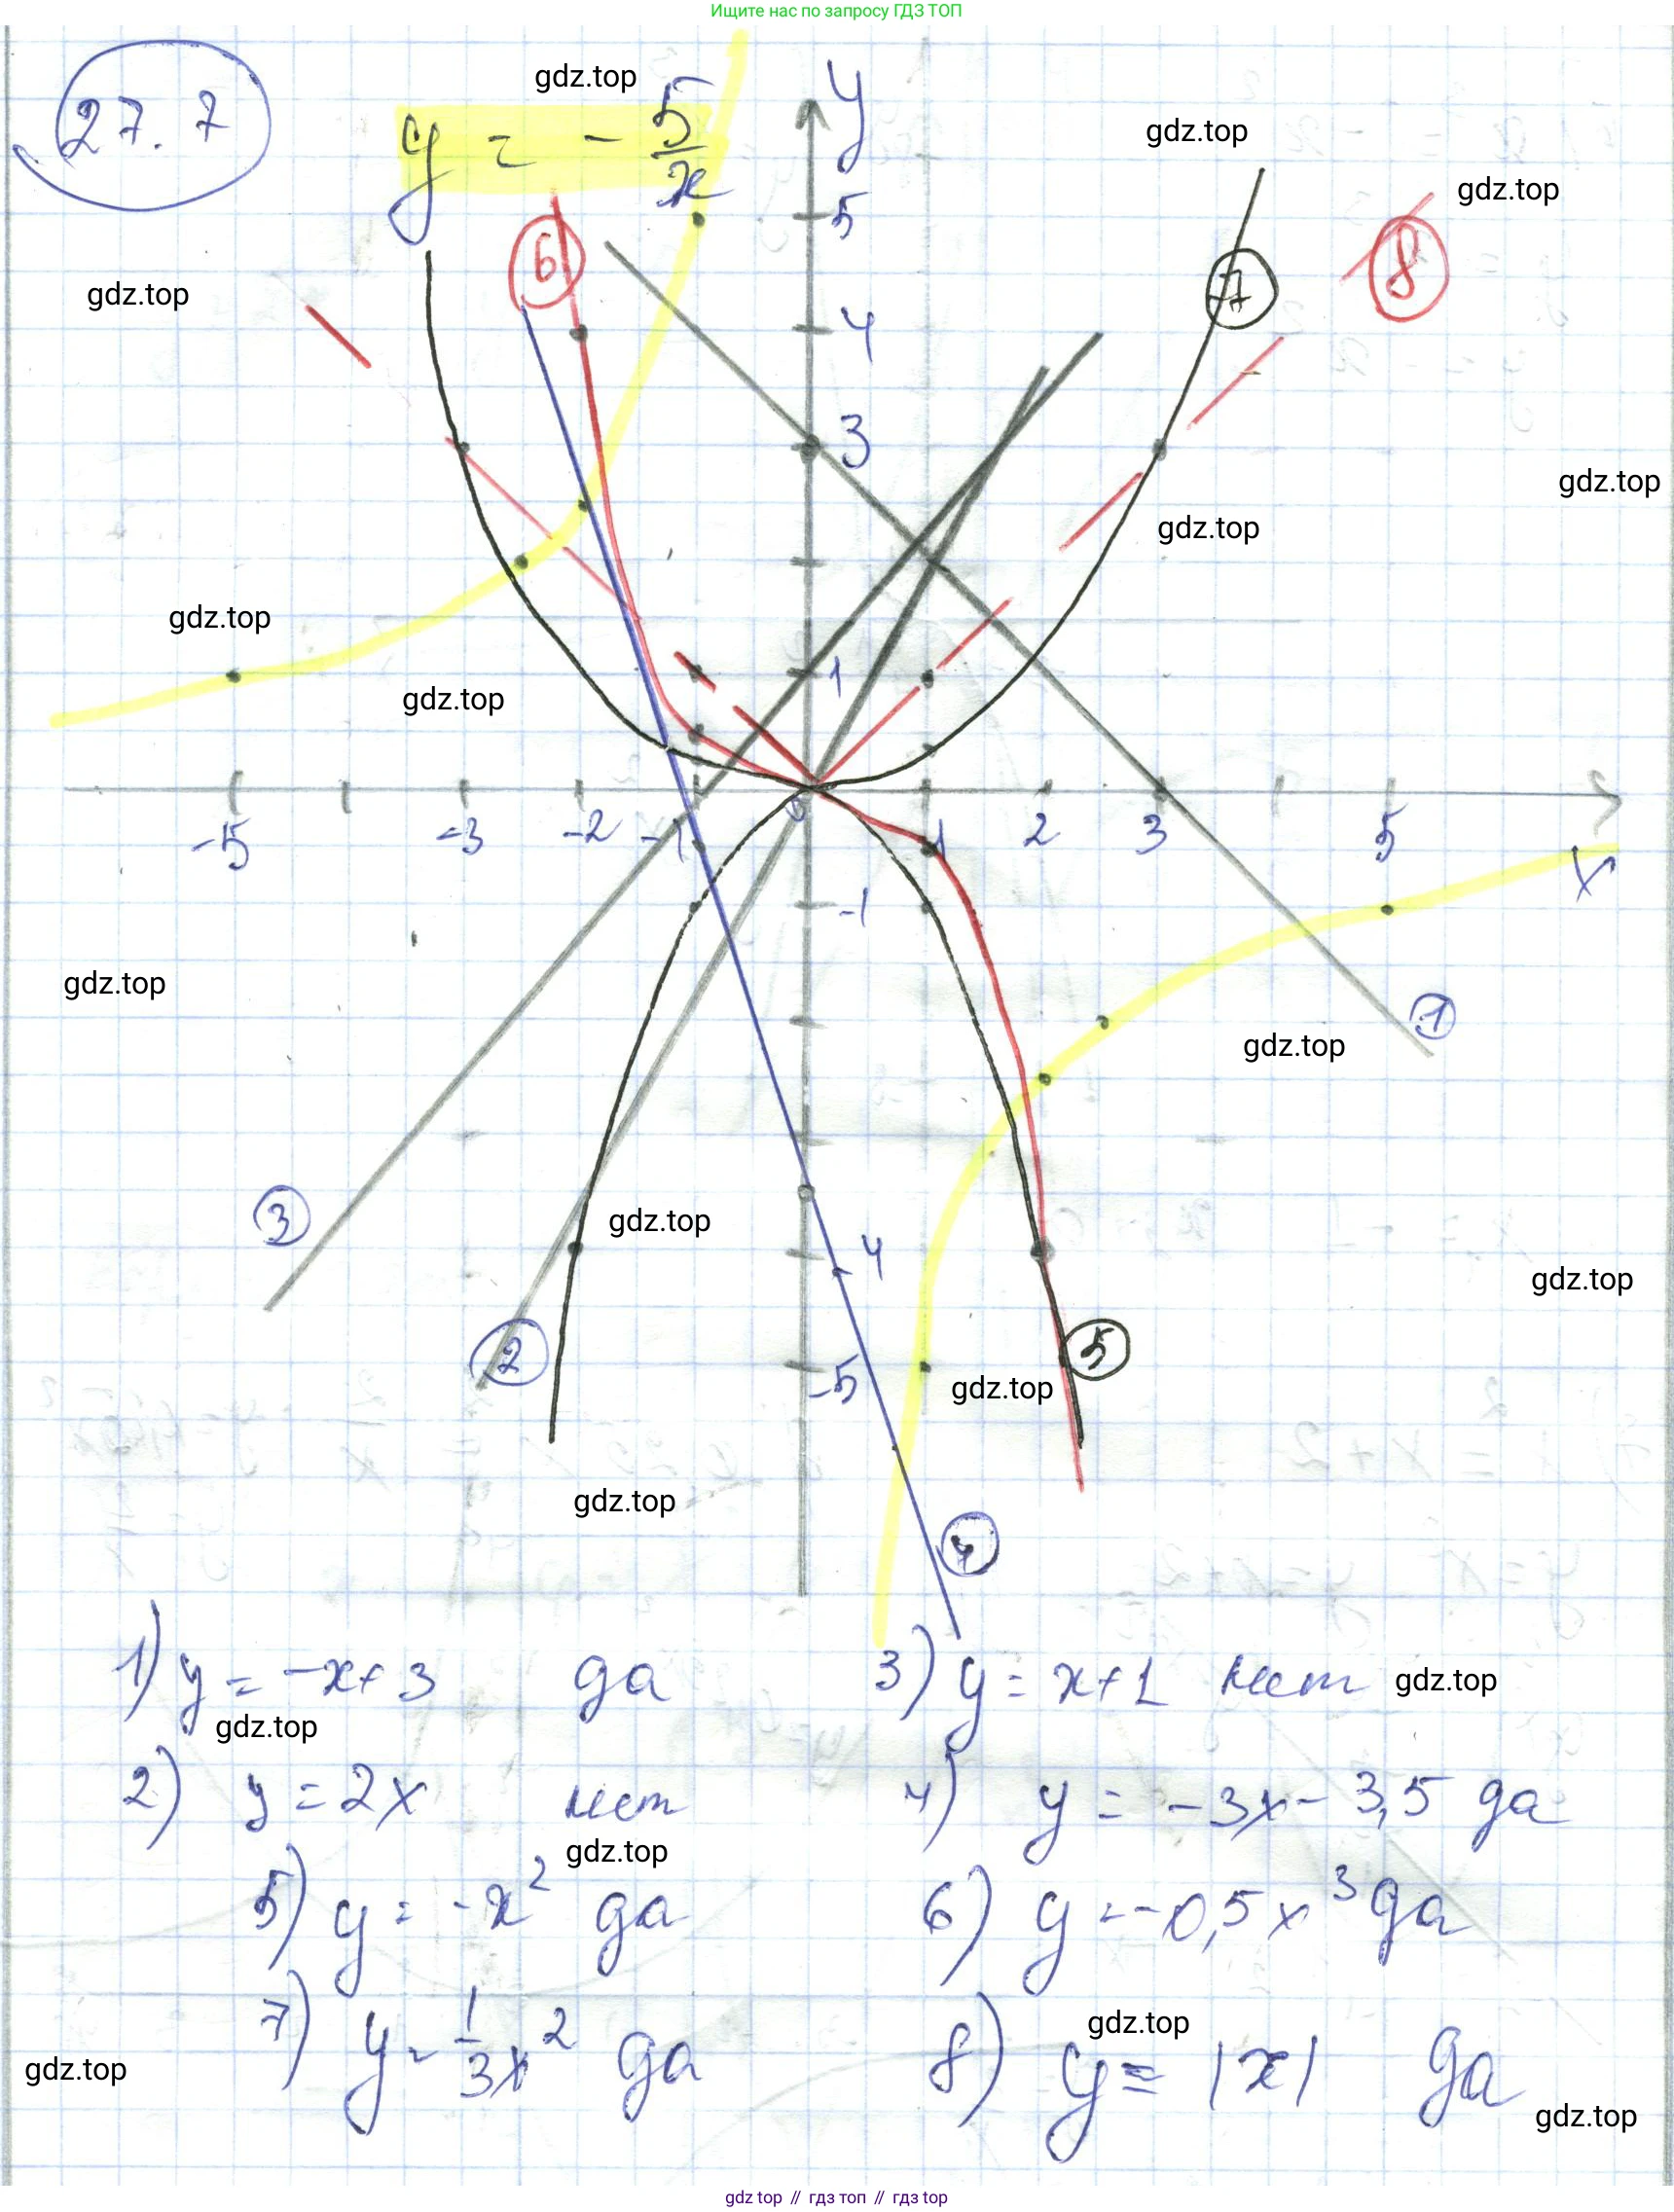 Ищите нас по запросу ГДЗ ТОП
27.7
y = - 5/x
y
gdz.top
gdz.top
gdz.top
gdz.top
6
8
7
5
4
3
1
gdz.top
gdz.top
gdz.top
gdz.top
-5 -3 -2 -1 0 1 2 3 5 x
-1
gdz.top
gdz.top
1
3
gdz.top
-4
gdz.top
2
-5
gdz.top
5
gdz.top
4
1) y = -x+3 да
3) y = x+1 нет
gdz.top
gdz.top
2) y = 2x нет
4) y = -3x - 3,5 да
gdz.top
5) y = -x² да
6) y = -0,5x³ да
7) y = 1/3x² да
8) y = |x| да
gdz.top
gdz.top
gdz.top
gdz top // гдз топ // гдз top